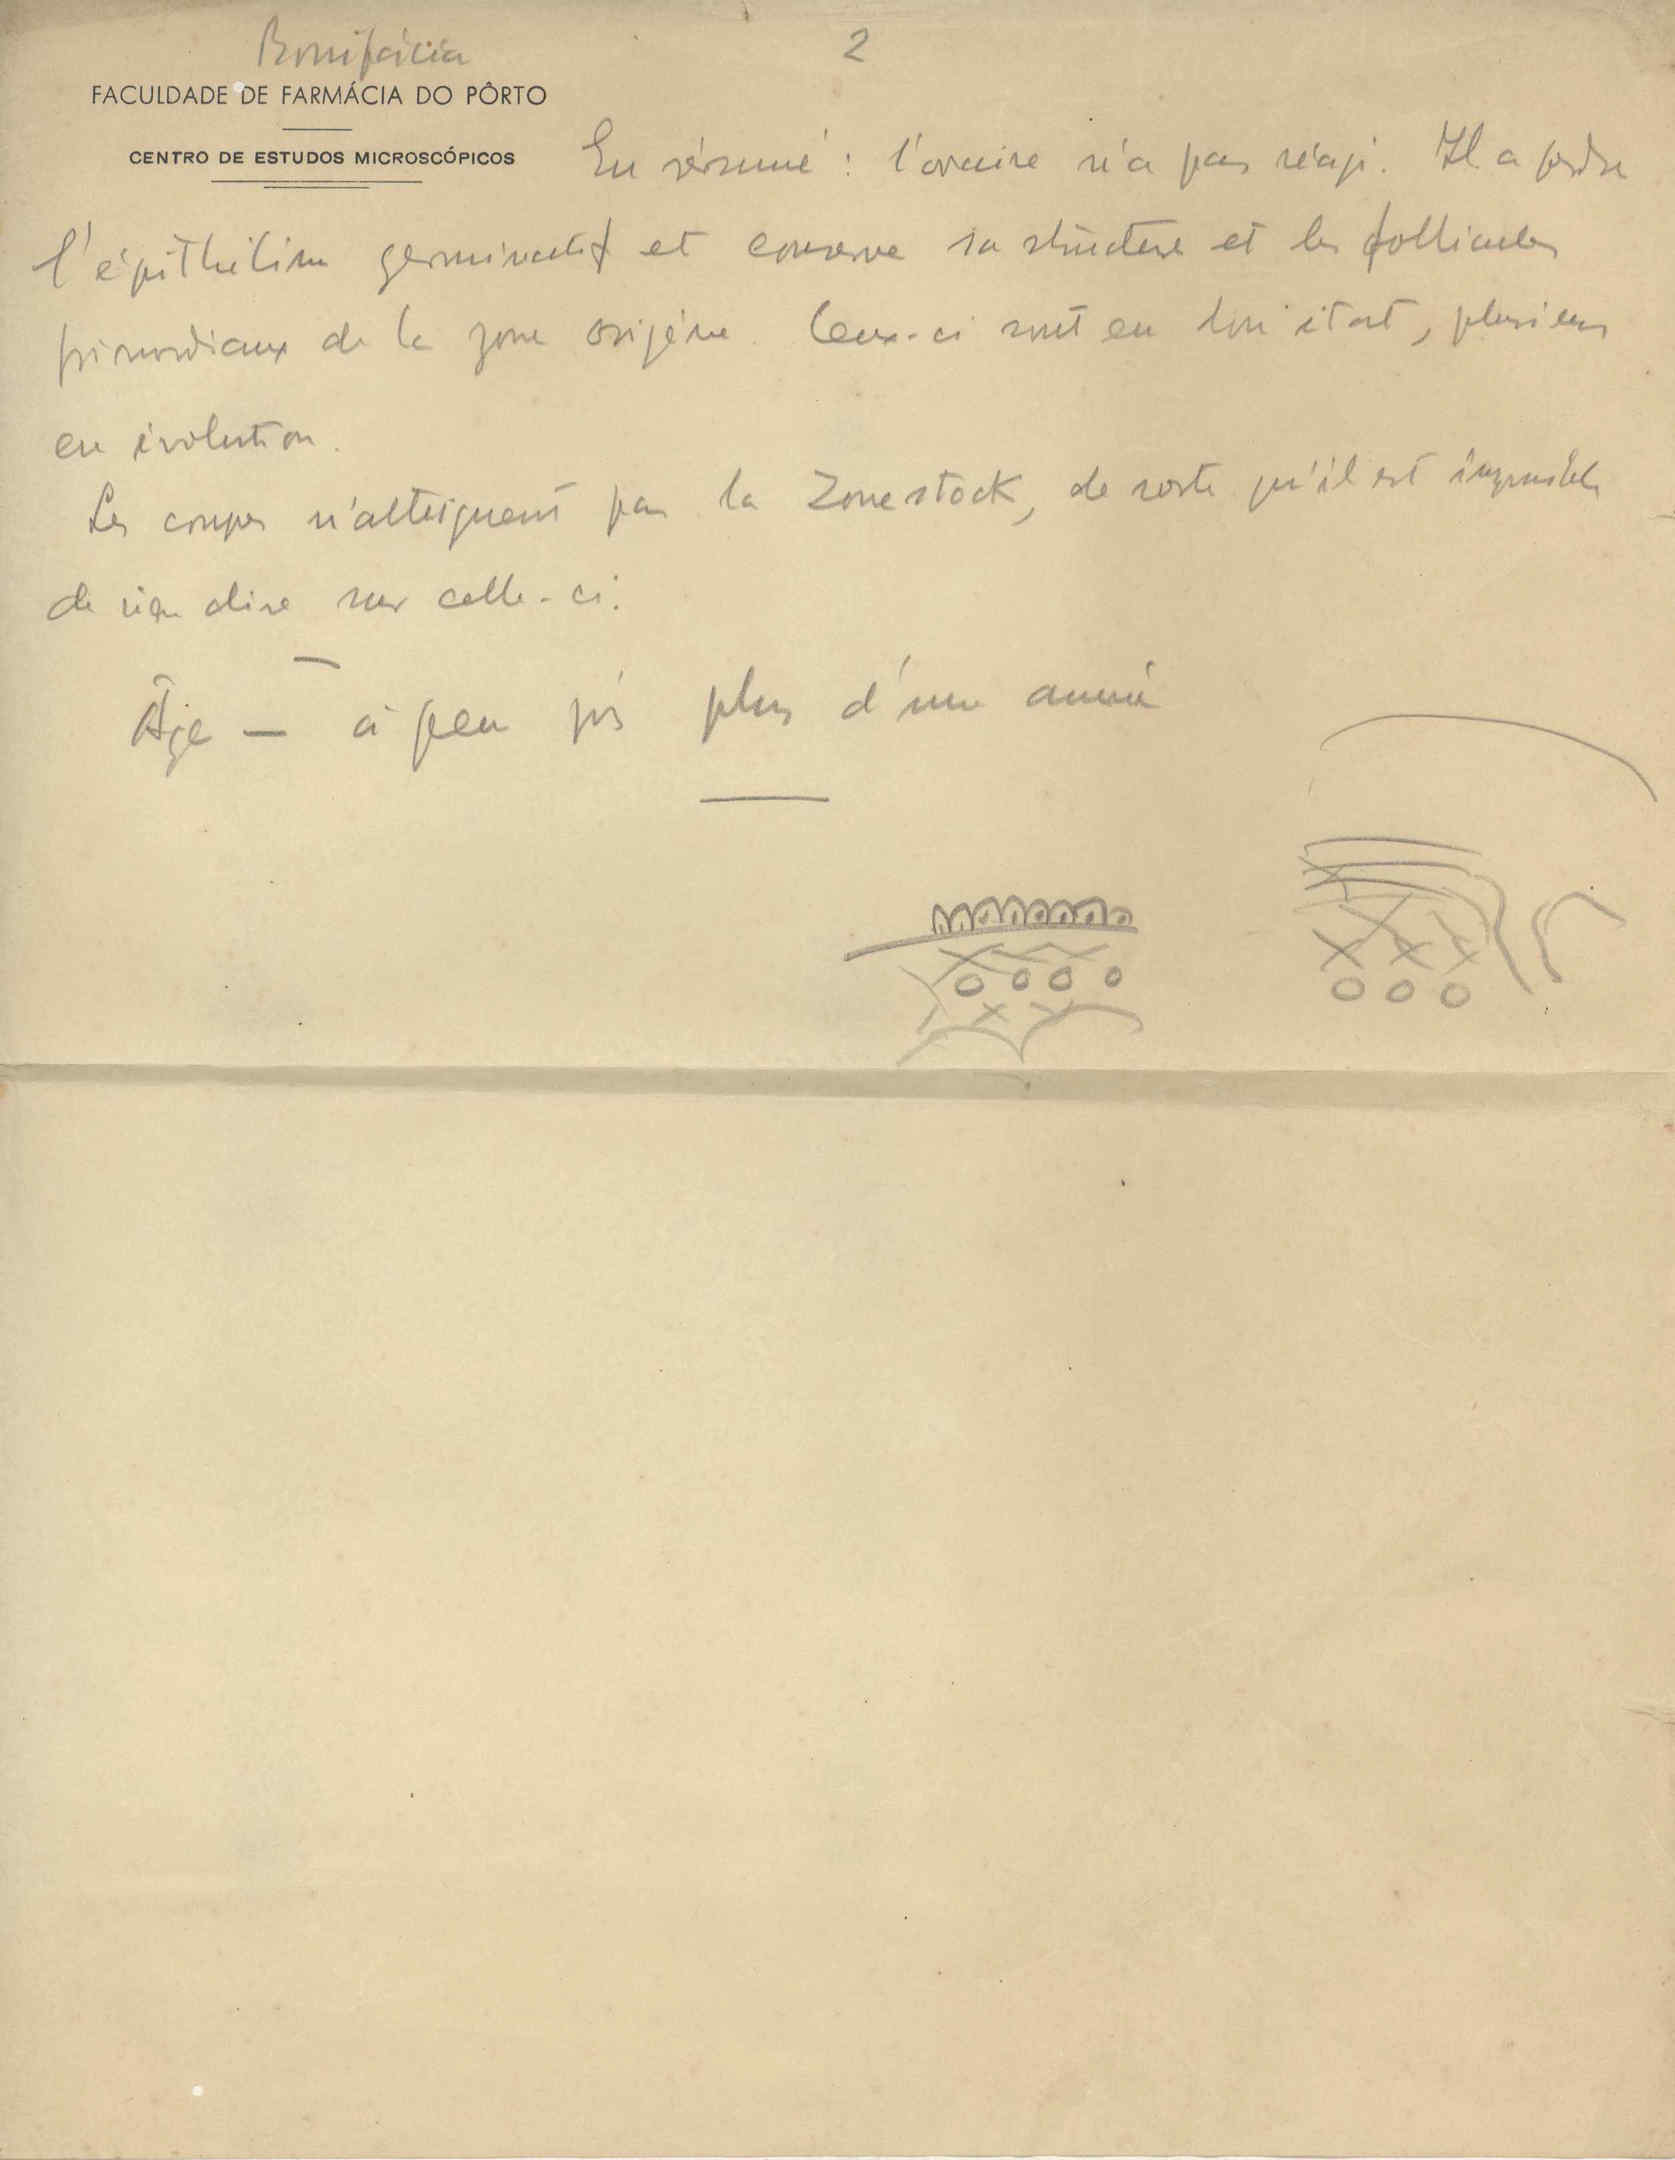 Bonifácia
2
FACULDADE DE FARMÁCIA DO PÔRTO
CENTRO DE ESTUDOS MICROSCÓPICOS
En résumé : l'ovaire n'a pas réagi. Il a perdu
l'épithélium germinatif et conserve sa structure et les follicules
primordiaux de la zone origène. Ceux-ci sont en bon état, plusieurs
en évolution.
Les coupes n'atteignent pas la Zone stock, de sorte qu'il est impossible
de rien dire sur celle-ci.
Âge — à peu près plus d'une année